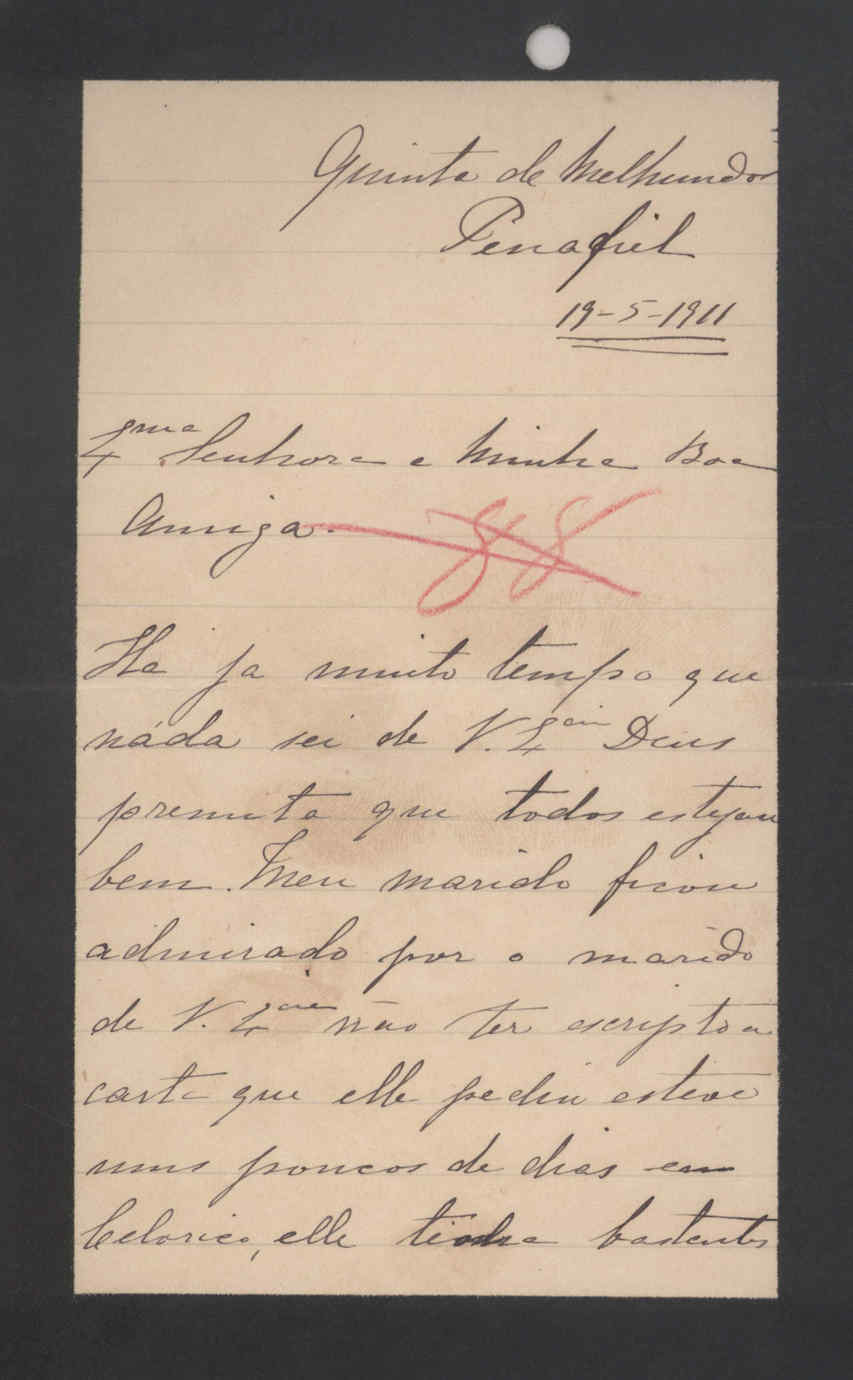 Quinta de Melhundos
Penafiel
19-5-1911
Exma Senhora e Minha Boa
Amiga.
88
Ha ja muito tempo que
náda sei de V. Excia Deus
premita que todos estejam
bem. Meu marido ficou
admirado por o marido
de V. Excia não ter escripto a
carta que elle pediu esteve
uns poucos de dias em
Celorico, elle tinha bastentes